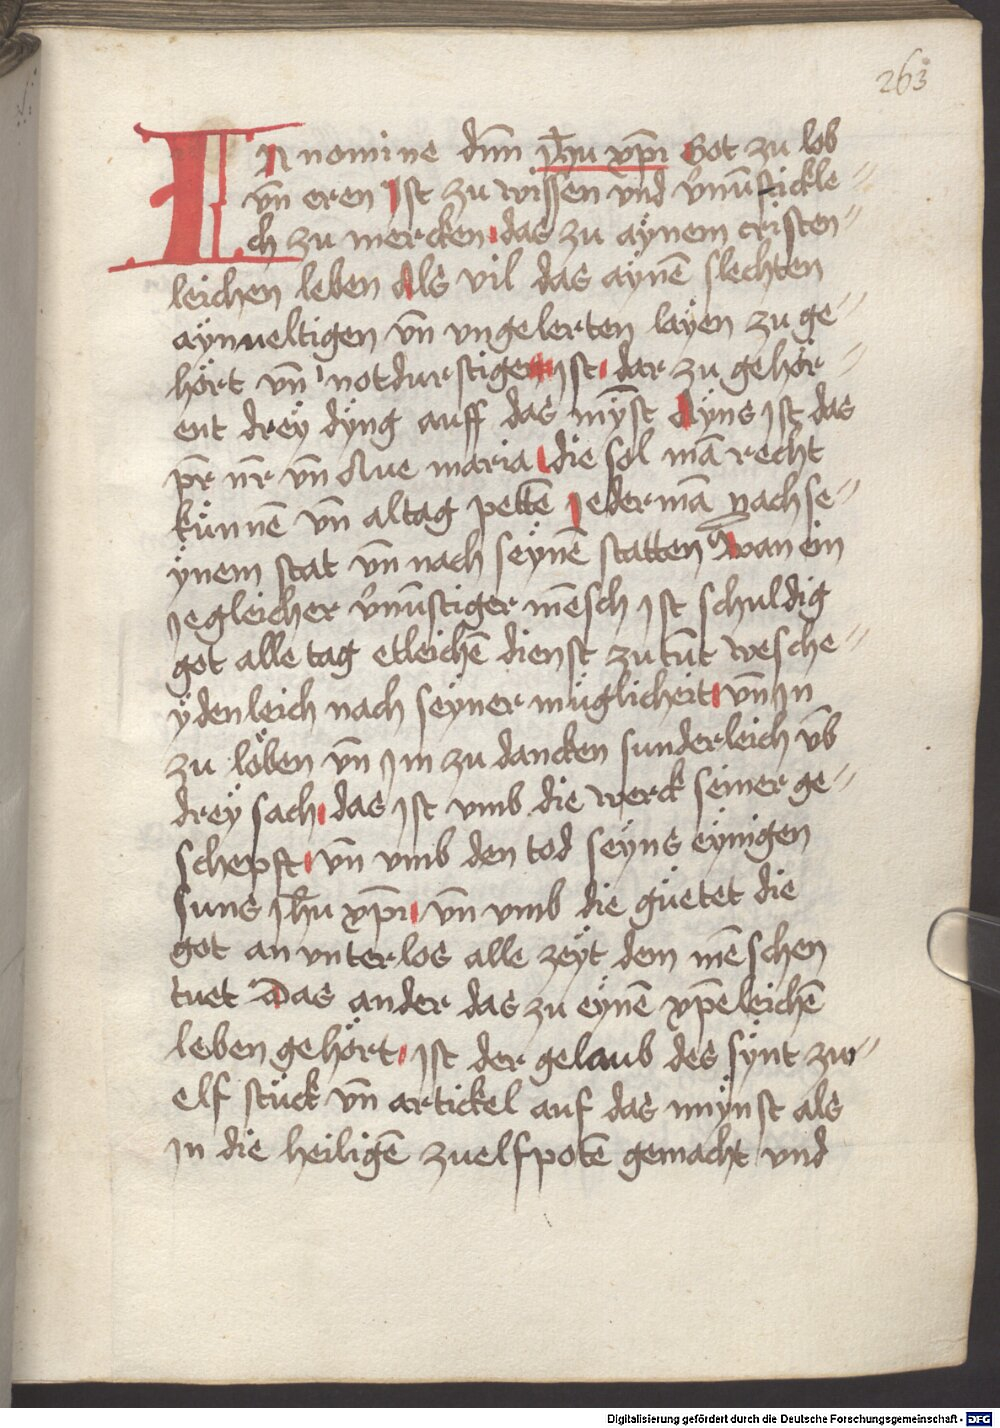 263
In nomine dnī Jh̄u xp̄i Got zu lob
vn̄ eren Ist zu wissen vnd v'nūftickle
ch zu mercken das zu aÿnem cristen
leichen leben als vil das aÿnē slechten
aÿnueltigen vn̄ vngelerten laÿen zu ge
hört vn̄ notdurftigen ist dar zu gehör
ent dreÿ dÿng auff das mÿst Aÿns ist das
pr̄ nr̄ vn̄ Aue maria die sol mā recht
künnē vn̄ altag pettē Jedermā nach se
ÿnem stat vn̄ nach seÿnē statten wan ein
Jegleicher v'nūftiger mēsch Jst schuldig
got alle tag etleichē dienst zu tūt wesche
ÿdenleich nach seÿner müglicheit vn̄ Jn
zu löben vn̄ Jm zu dancken sunderleich vm̄b
dreÿ sach das Jst vmb die werck seiner ge
schepft vn̄ vmb den tod seÿns eÿnigen
suns Jh̄u xp̄i vn̄ vmb die güetet die
got an vnterlos alle zeÿt dem mēschen
tuet Das ander das zu eÿnē xp̄eleichē
leben gehört ist der gelaub des sÿnt zw
elf stück vn̄ artickel auf das mÿnst als
Jn die heiligē zuelfpotē gemacht vnd
Digitalisierung gefördert durch die Deutsche Forschungsgemeinschaft - DFG